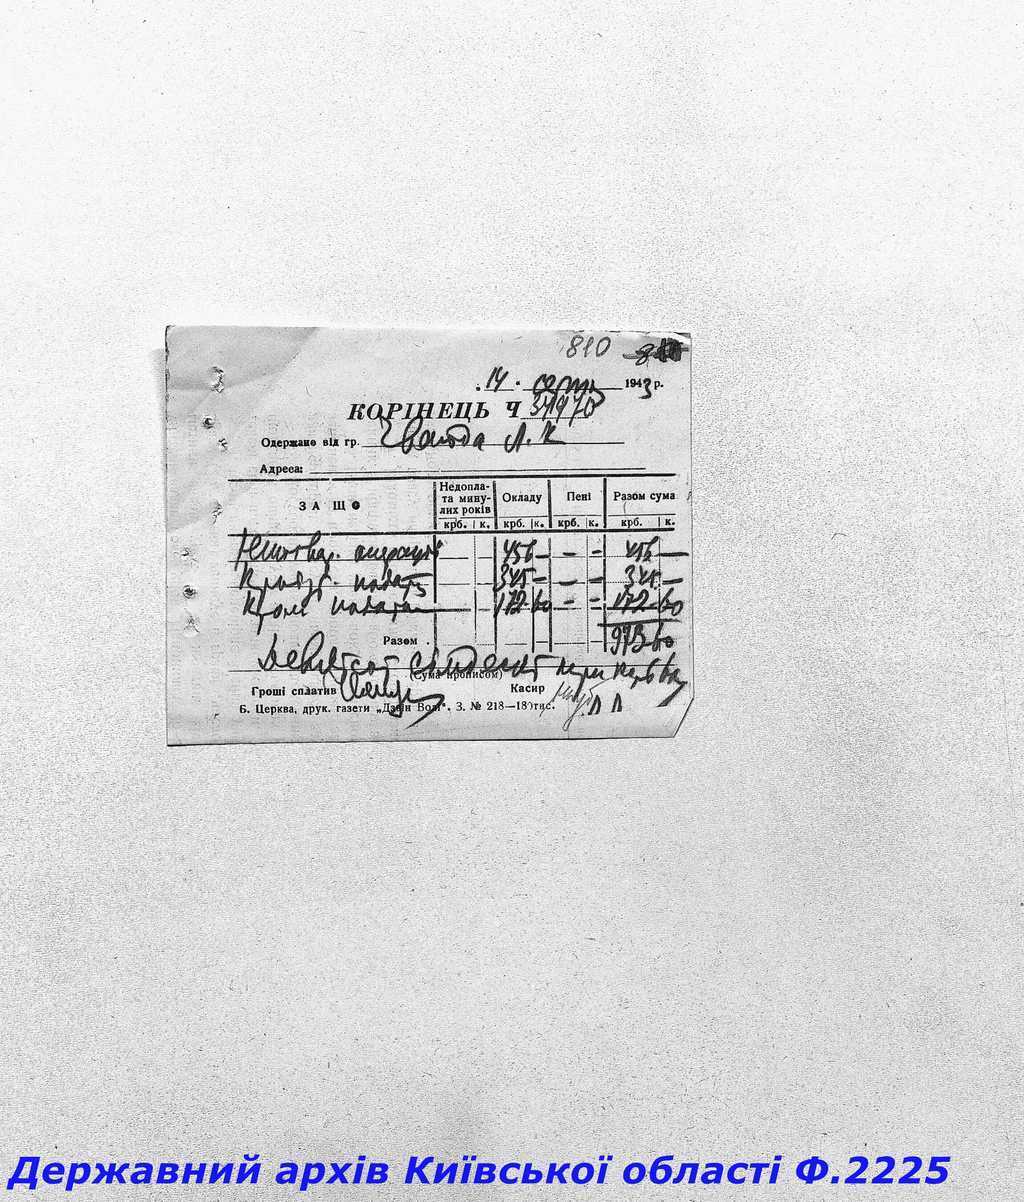 810
14 серпня 1943 р.
КОРІНЕЦЬ Ч 37970
Одержано від гр. Л. К
Адреса:
ЗА ЩО
Недопла-
та мину-
лих років
Окладу
Пені
Разом сума
крб. к. крб. к. крб. к. крб. к.
456 — — — 456 —
податк 345 — — — 345 —
податк 172 60 — — 172 60
Разом 973 60
Девятсот сімдесят три карб 60
(Сума прописом)
Гроші сплатив Касир
Б. Церква, друк. газети „Дзвін Волі“. З. № 218—180тис.
Державний архів Київської області Ф.2225